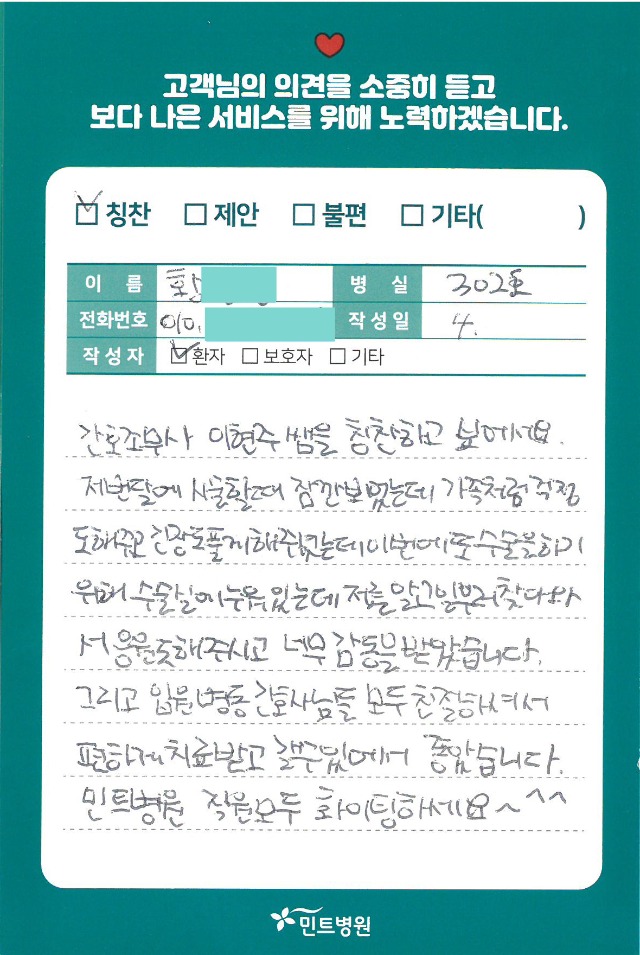 고객님의 의견을 소중히 듣고
보다 나은 서비스를 위해 노력하겠습니다.
칭찬 제안 불편 기타( )
이 름 황 병 실 302호
전화번호 010. 작성일 4.
작성자 환자 보호자 기타
간호조무사 이현주쌤을 칭찬하고 싶에서요.
저번달에 시술할때 잠깐보았는데 가족처럼 걱정
도해주고 긴장도풀게해주셨는데 이번에 또 수술을 하기
위해 수술실에 누워있는데 저를 알고 일부러 찾다와
서 응원도해주시고 너무 감동을 받았습니다.
그리고 입원 병동 간호사님들 모두 친절하셔서
편하게 치료받고 갈수있에서 좋았습니다.
민트병원 직원모두 화이팅하세요~^^
민트병원